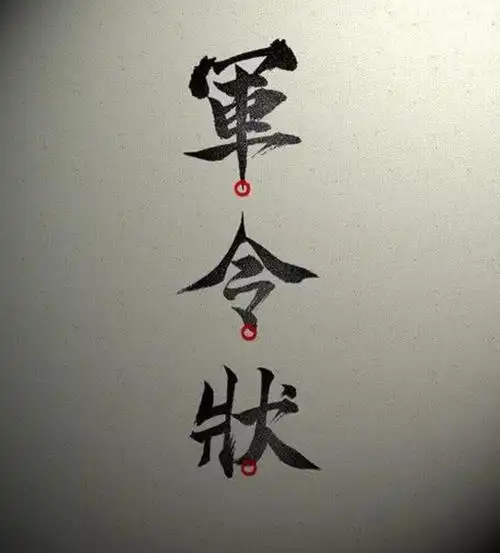 軍令狀